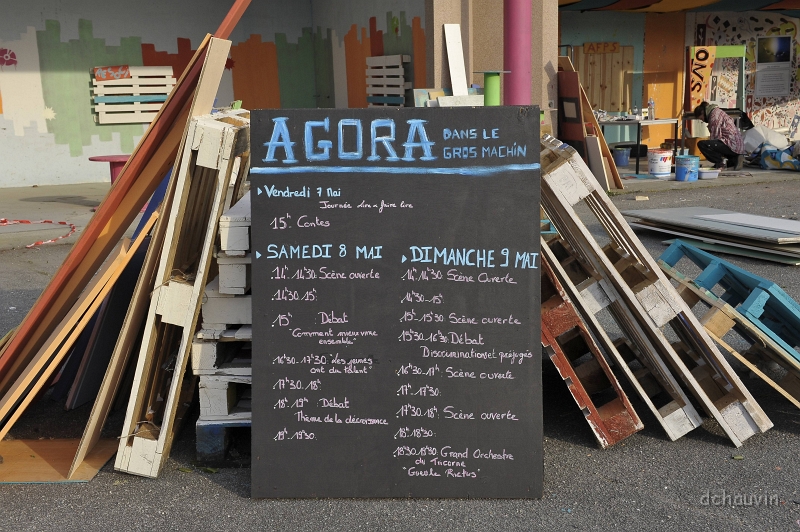 AGORA
DANS LE
GROS MACHIN
Vendredi 7 Mai
Journée lire à faire lire
15h Contes
SAMEDI 8 MAI
14h. 14h30. Scène ouverte
14h30. 15h:
15h Débat
"Comment mieux vivre
ensemble"
16h30 - 17h30 "Les jeunes
ont du talent"
17h30. 18h
18h - 19h Débat
Thème de la décroissance
19h. 19h30.
DIMANCHE 9 MAI
14h. 14h30 Scène Ouverte
14h30 - 15h.
15h - 15h30 Scène ouverte
15h30. 16h30 Débat
Discrimination et préjugés
16h30. 17h. Scène ouverte
17h. 17h30:
17h30. 18h. Scène ouverte
18h. 18h30:
18h30. Grand Orchestre
du Tricorne
"Gueule Rictus"
AFPS
dchauvin